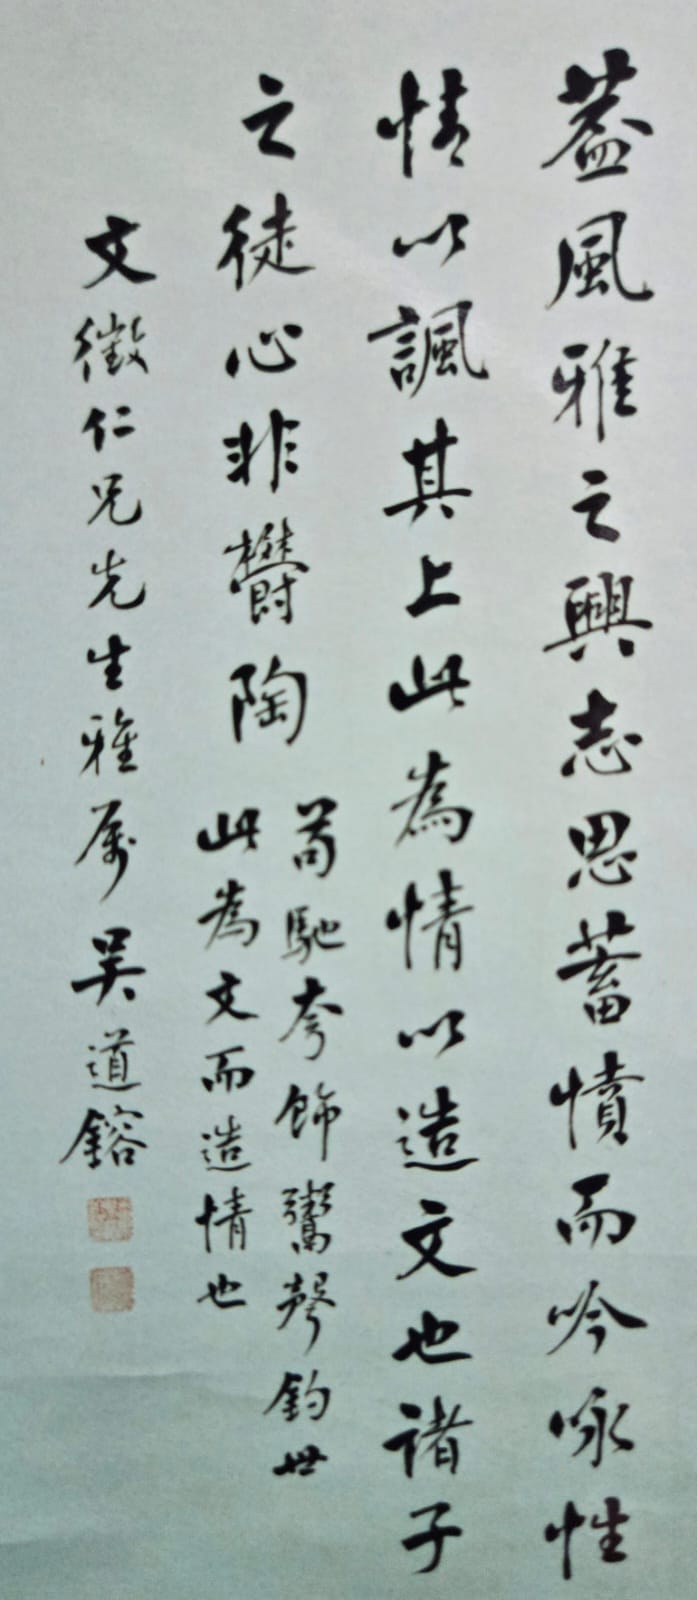 蓋風雅之興志思蓄憤而吟咏性
情以諷其上此為情以造文也諸子
之徒心非欝陶
苟馳夸飾鬻聲釣世
此為文而造情也
文徵仁兄先生雅属 吳道鎔